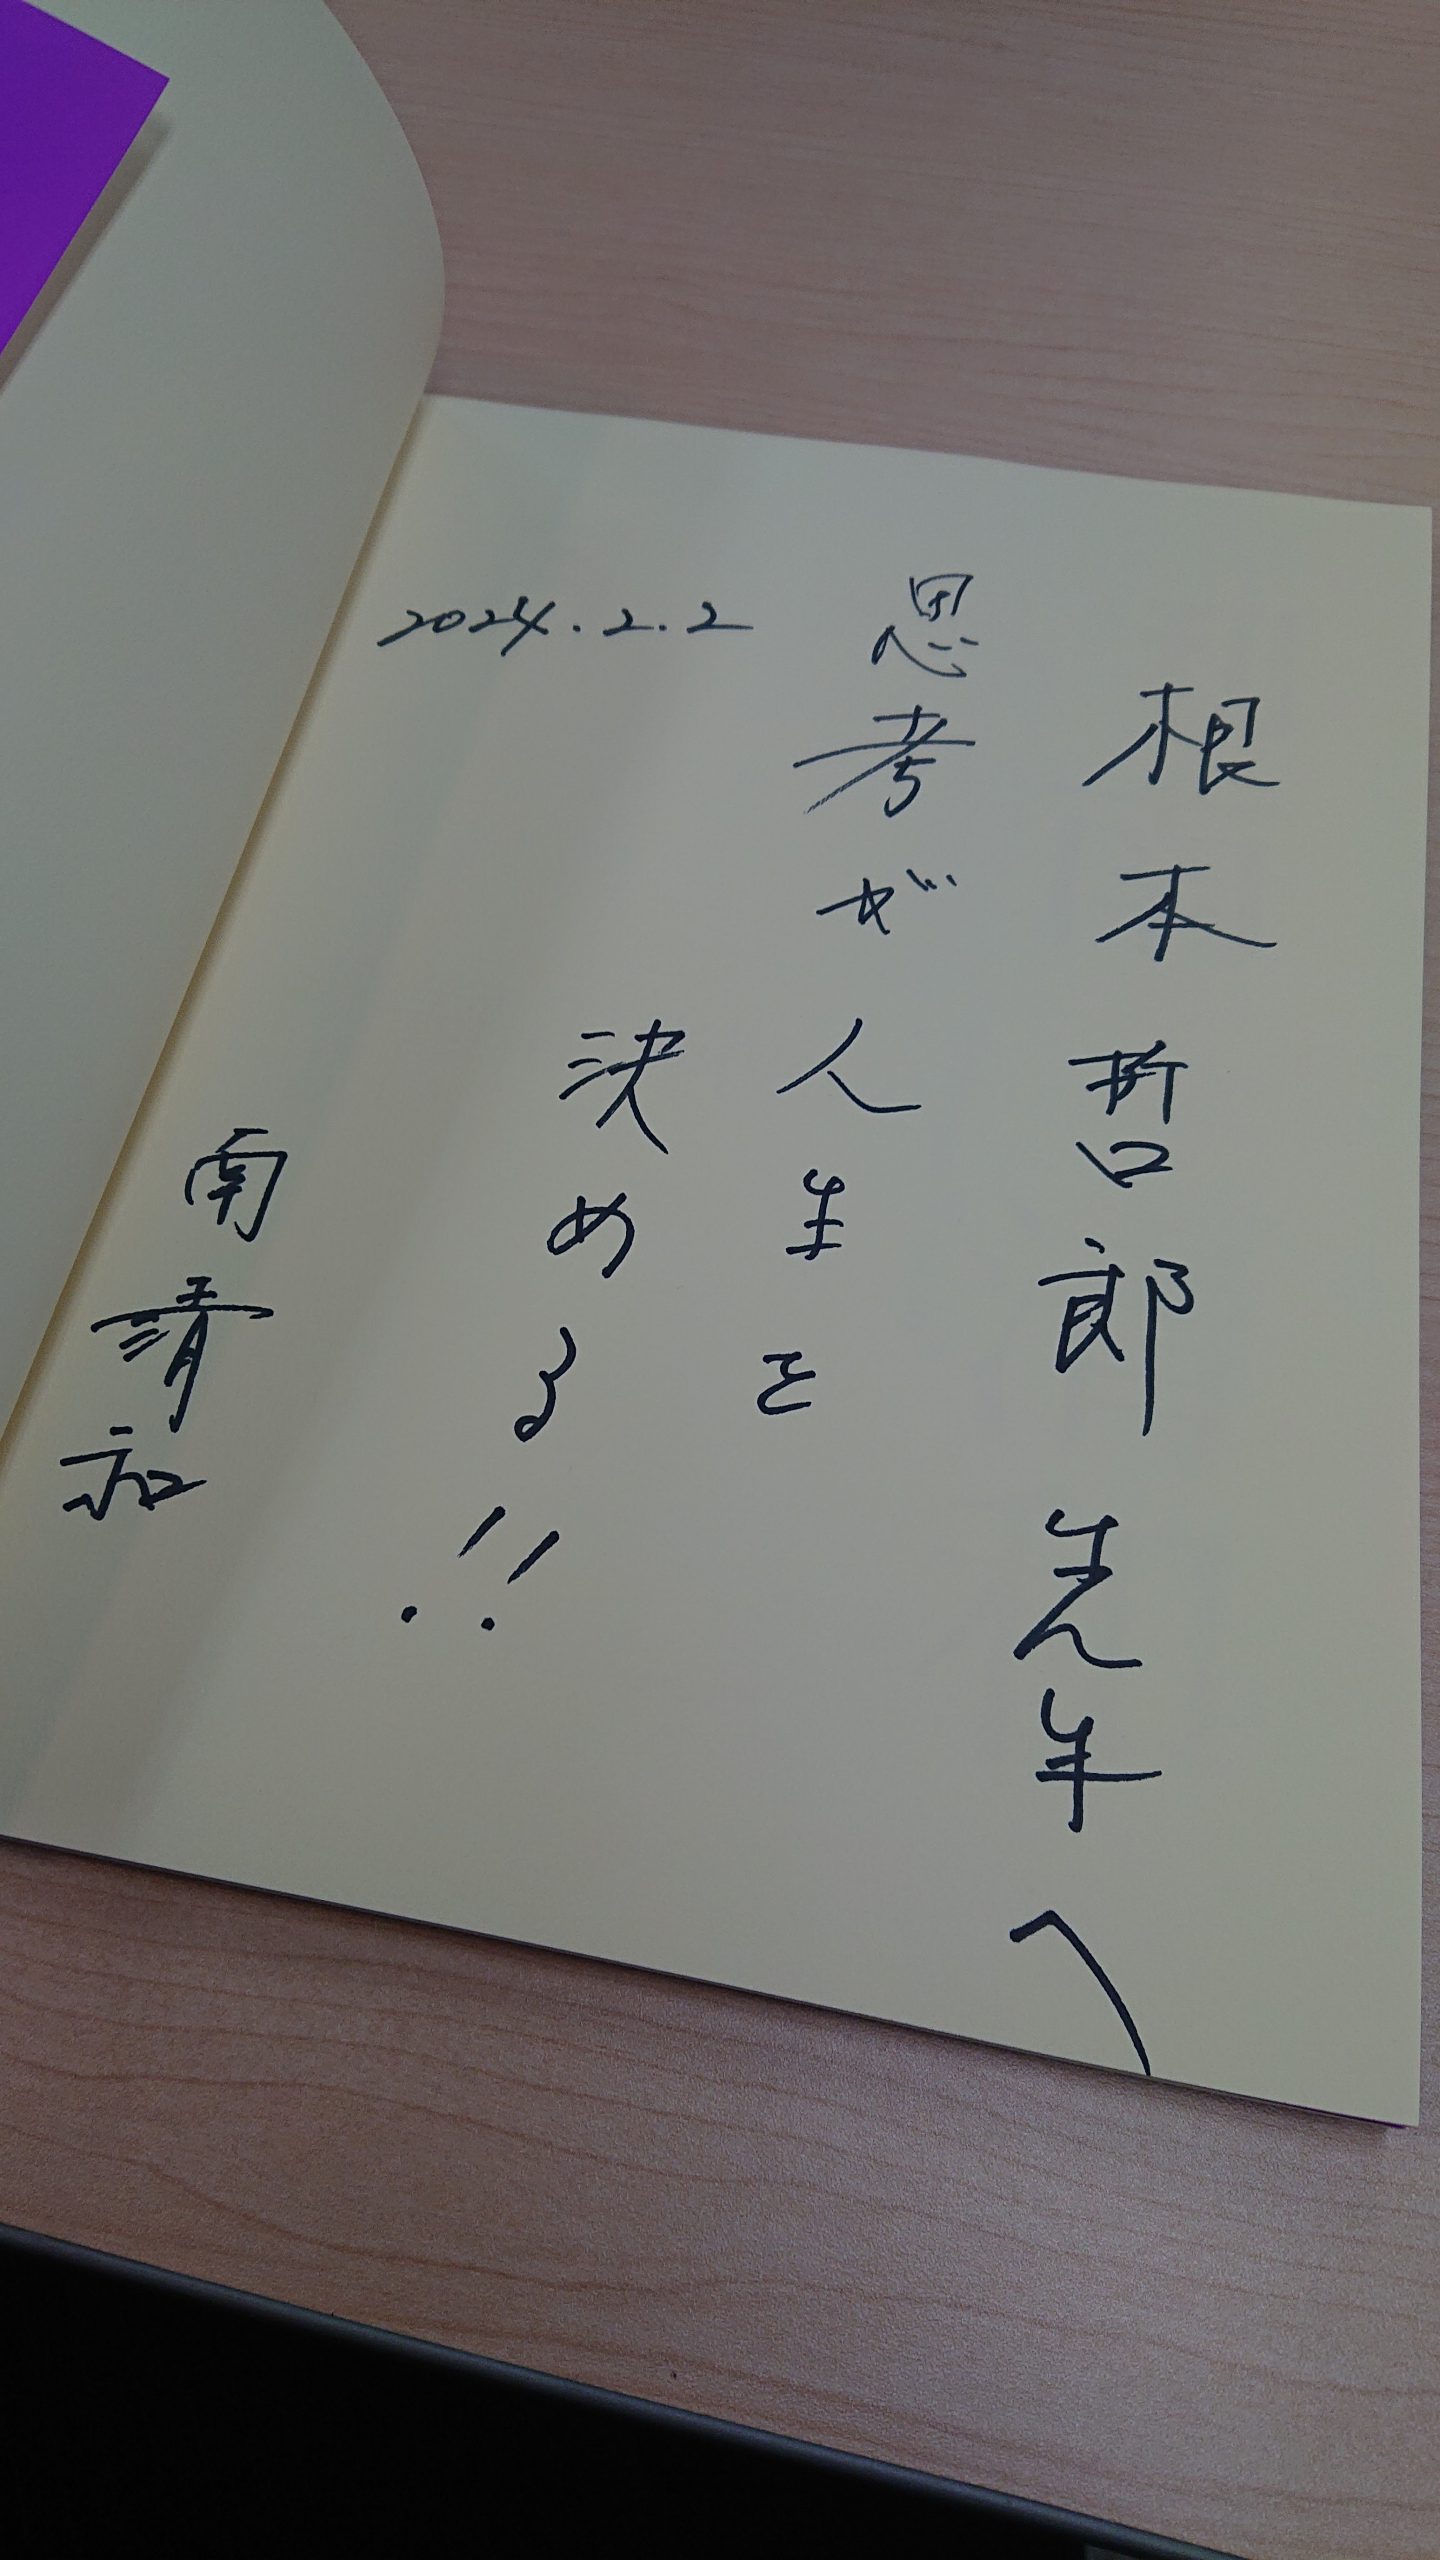 根本哲郎先生へ
思考が人生を
決める!!
2024.2.2
南清和